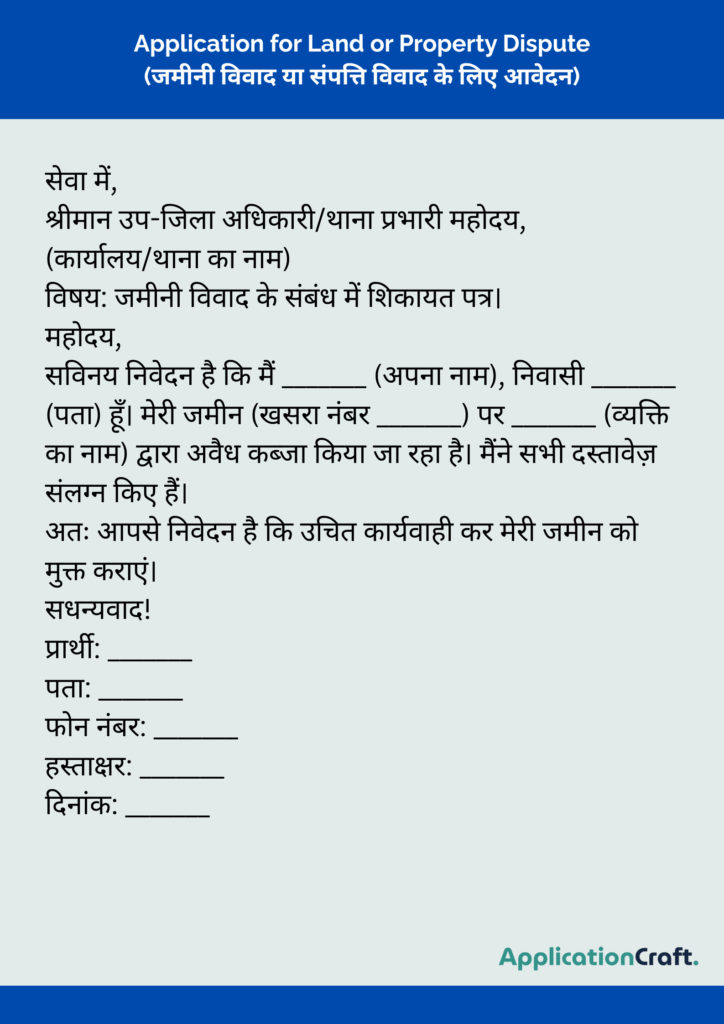 Application for Land or Property Dispute
(जमीनी विवाद या संपत्ति विवाद के लिए आवेदन)
सेवा में,
श्रीमान उप-जिला अधिकारी/थाना प्रभारी महोदय,
(कार्यालय/थाना का नाम)
विषय: जमीनी विवाद के संबंध में शिकायत पत्र।
महोदय,
सविनय निवेदन है कि मैं _______ (अपना नाम), निवासी _______
(पता) हूँ। मेरी जमीन (खसरा नंबर _______) पर _______ (व्यक्ति
का नाम) द्वारा अवैध कब्जा किया जा रहा है। मैंने सभी दस्तावेज़
संलग्न किए हैं।
अतः आपसे निवेदन है कि उचित कार्यवाही कर मेरी जमीन को
मुक्त कराएं।
सधन्यवाद!
प्रार्थी: _______
पता: _______
फोन नंबर: _______
हस्ताक्षर: _______
दिनांक: _______
ApplicationCraft.